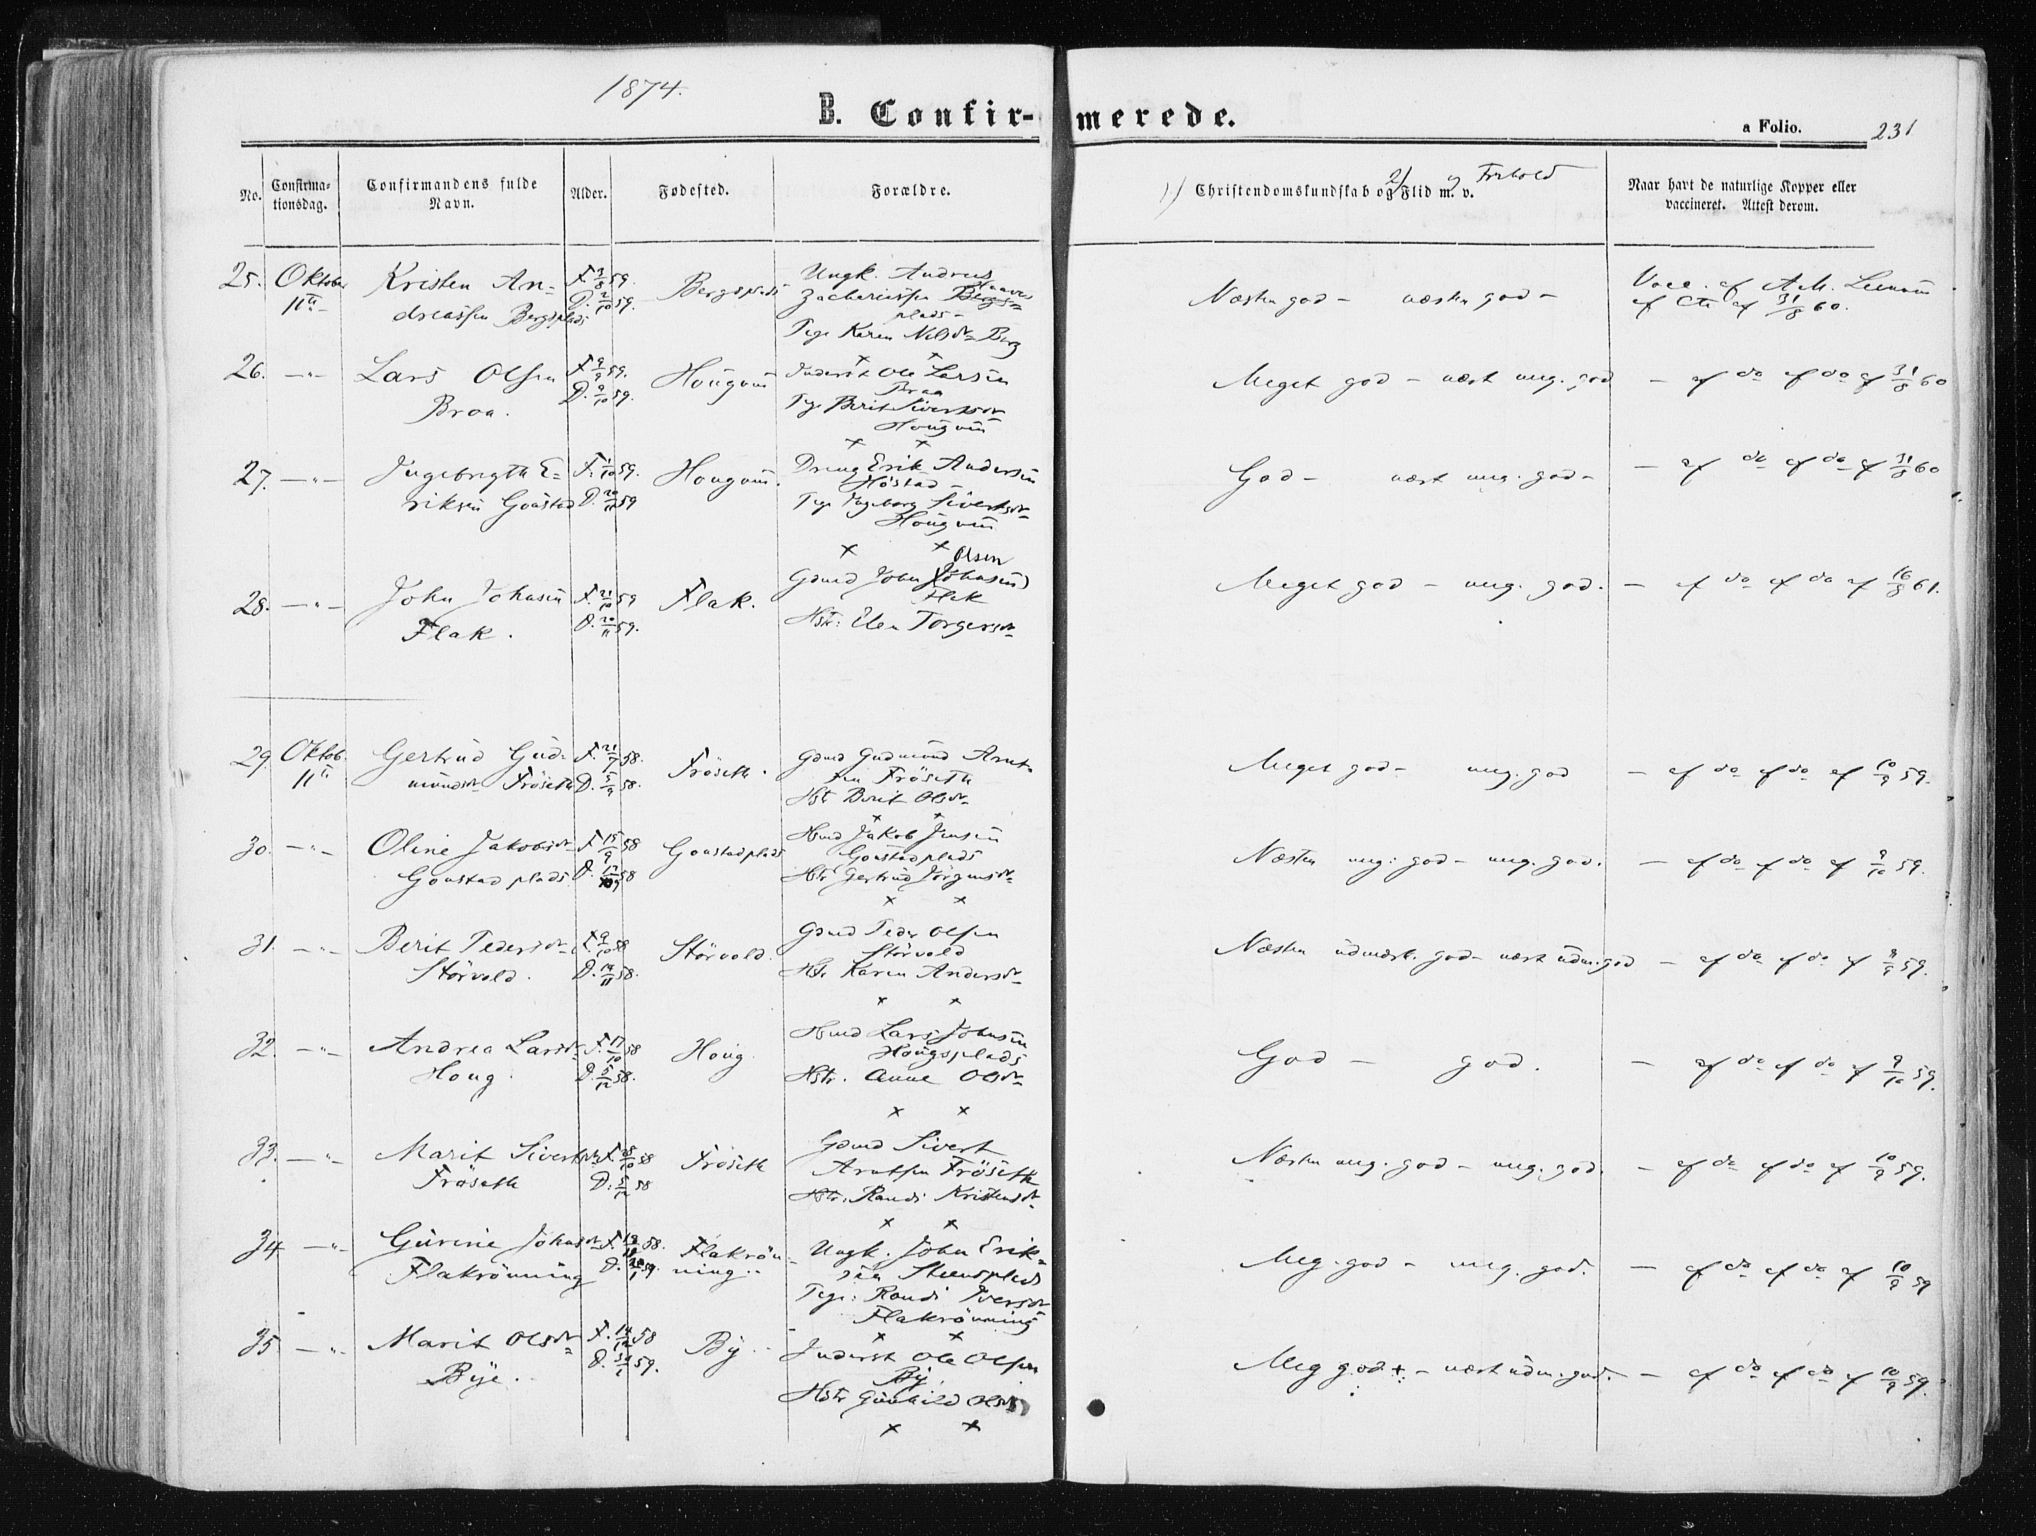 1874.
B. Confirmerede.
a Folio. 231
No.
Confirmationsdag.
Confirmandens fulde Navn.
Alder.
Fødested.
Forældre.
1) Christendomskundskab og 2) Flid m. v. Forhold
Naar havt de naturlige Kopper eller vaccineret. Attest derom.
25. Oktober Kristen An- F. 3/8 59. Bergsplads Ungk. Andreas
11te dreassen Bergsplads D. 2/10 59. Zachariassen
plads - Næsten god - næsten god - Vacc. af A. M.
Pige Karen Nilsdr Berg af 31/8 60.
26. -"- Lars Olsen F. 9/9 59. Hougum Inderst Ole Larsen Meget god - næst meg. god - af do af do af 31/8 60
Broa. D. 9/10 59. Broa
Pige Berit Sivertsdr
Hougum
27. -"- Ingebrigth E- F. 1/10 59. Hougum. Dreng Erik Andersen God - næst meg. god - - af do af do af 31/8 60
riksen Gaustad D. 20/11 59 Høstad -
Pige Ingeborg Sivertsdr
Hougum
28. -"- John Johnsen F. 21/10 59 Flak. Gdmd John Johnsen Olsen Meget god - meg. god. - af do af do af 16/8 61.
Flak. D. 20/11 59. Flak
Hstr: Elen Torgersdr
29. Oktob. Gertrud Gud- F. 21/7 58. Fröseth. Gdmd Gudmund Arnt- Meget god - meg. god - af do af do af 10/9 59.
11te mundsdr Fröseth D. 5/9 58. sen Fröseth
Hstr Berit Olsdr
30. -"- Oline Jakobsdr F. 15/9 58 Goustadplads Hsmd Jakob Jensen Næsten meg. god - meg. god. - af do af do af 9/10 59.
Goustadplads. D. 58 Goustadplads
Hstr Gertrud Jörgensdr
31. -"- Berit Pedersdr F. 9/10 58 Störvold. Gdmd Peder Olsen Næsten udmærk. god - næst udm. god - af do af do af 59.
Störvold. D. 14/11 58. Störvold
Hstr Karen Andersdr
32. -"- Andrea Larsdr F. 17/10 58 Houg. Hsmd Lars Johnsen God - god. - af do af do af 9/10 59.
Houg. D. 5/12 58. Hougsplads
Hstr. Anne Olsdr
33. -"- Marit Sivertsdr F. 28/10 58 Fröseth Gdmd Sivert Næsten meg. god - meg. god. - af do af do af 10/9 59.
Fröseth D. 5/12 58 Arntsen Fröseth
Hstr. Randi Kristensdr
34. -"- Gurine Johnsdr F. 58. Flakrön- Ungk. John Erik- Meg. god - meg. god. - af do af do af 10/9 59
Flakrönning D. 59. ning. sen Steensplads
Pige: Randi Iversdr
Flakrönning
35. -"- Marit Olsdr F. 14/12 58 By Inderst Ole Olsen Meg god + - næst udm. god. - af do af do af 10/9 59.
Bye. D. 59. By.
Hstr Gunhild Olsdr